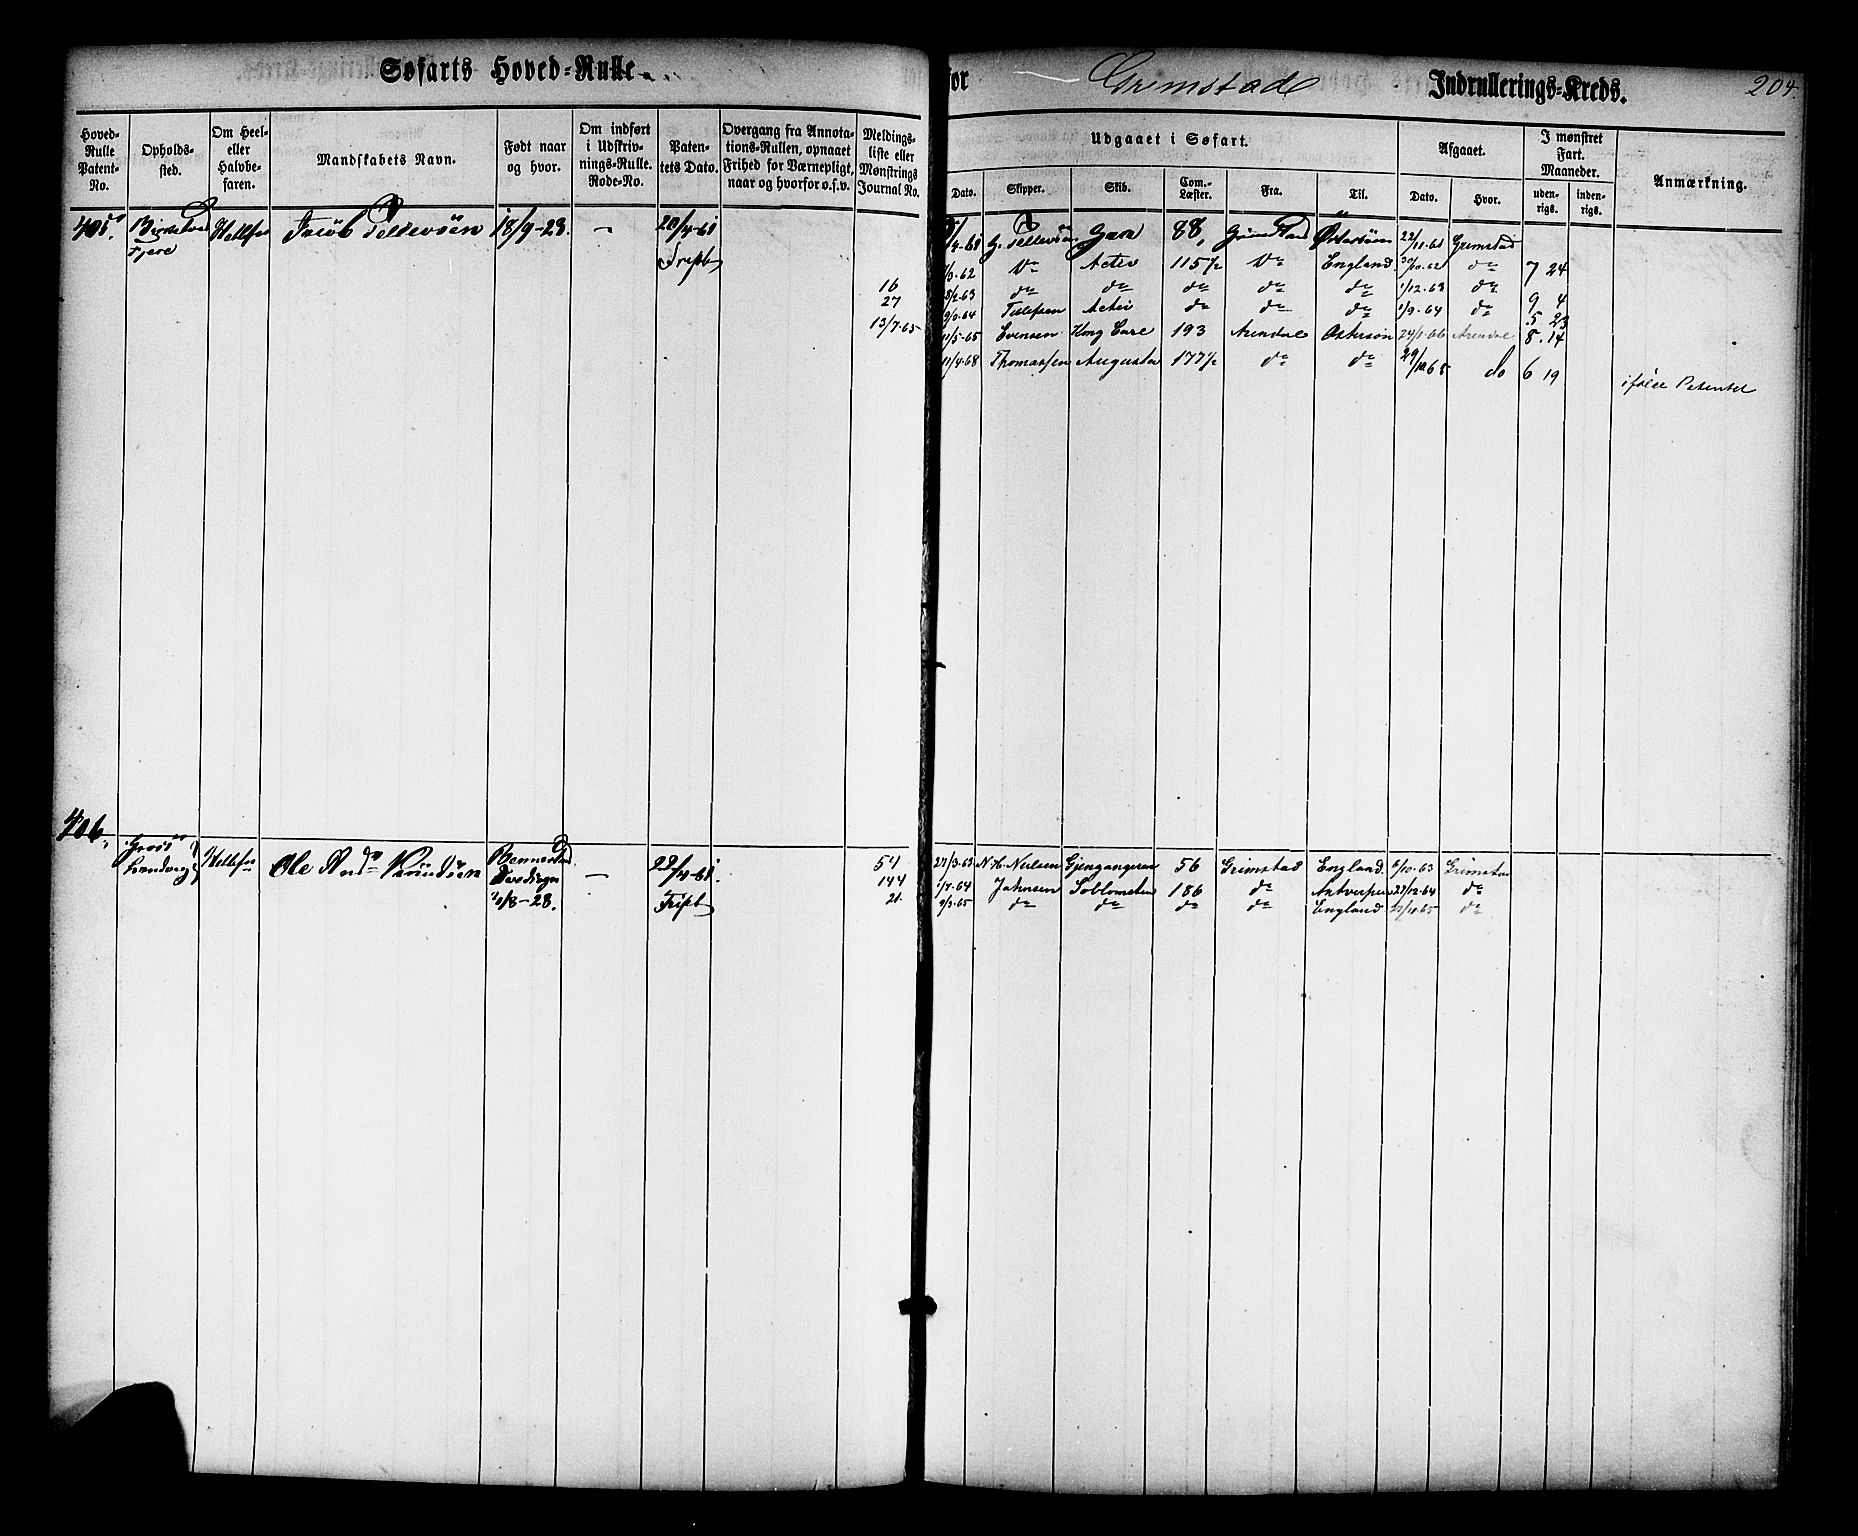 Søfarts Hoved=Rulle
for Grimstad Indrullerings=Kreds.
204.
Hoved-Rulle Patent-No.
Opholds-sted.
Om Heel- eller Halvbe-faren.
Mandskabets Navn.
Født naar og hvor.
Om indført i Udskriv-nings-Rulle. Rode-No.
Paten-tets Dato.
Overgang fra Annota-tions-Rullen, opnaaet Frihed for Værnepligt, naar og hvorfor o.s.v.
Meldings-liste eller Mønstrings Journal No.
Udgaaet i Søfart.
Dato.
Skipper.
Skib.
Com.-Læster.
Fra.
Til.
Afgaaet.
Dato.
Hvor.
I mønstret Fart. Maaneder.
uden-rigs.
inden-rigs.
Anmærkning.
405. Jacob Tellevsen 18/9-28. - 20/4-61 G. Tellevsen 88, Grimstad Østersøen 22/11-61 Grimstad
Fjere Fripb
/3-62 Do Activ 115½ Do England 30/10-62 do 7 24
16 8/2-63 do do do do do 1/12-63 do
27 Tellefsen Activ do do do 1/9-64 do 9 4
5 23
13/7-65 11/5-65 Evensen Kong Carl 193 Arendal Østersøn 24/1-66 Arendal 8.14
11/4-68 Thomassen Augusta 177½ do do 29/10 68 do 6 19
ifølge Patentet
406. Ole And. 22/4-61. 54 27/3-63 N. H. Nielsen Gjengangeren 56 Grimstad England 6/10-63 Grimstad
Landvig - 144 1/7-64 Johnsen 186 do Antverpen 22/12-64 do
/8-28. Fripb 21. 9/3-65 do do do do England 22/10-65 do